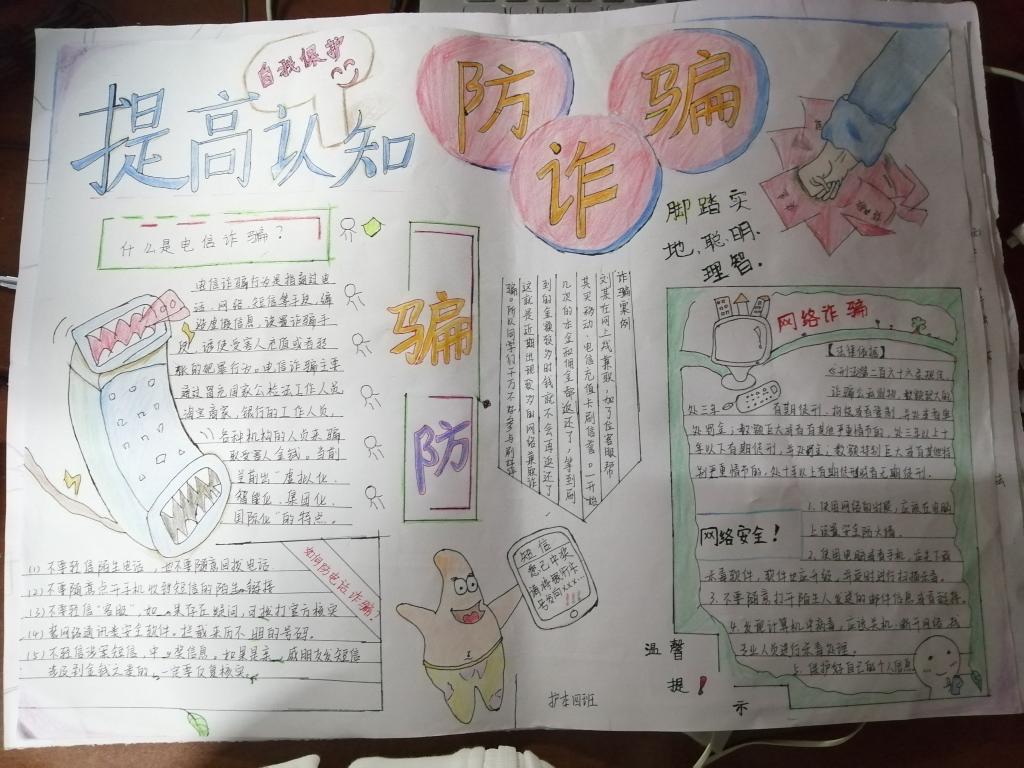 自我保护
提高认知
防
骗
诈
脚踏实
地、聪明、
理智。
什么是电信诈骗？
电信诈骗行为是指通过电
话、网络、短信等手段，编
造虚假信息，设置诈骗手
段，诱使受害人
的犯罪行为。电信诈骗主要
通过冒充国家公检法工作人员
淘宝卖家、银行的工作人员
各种机构的人员来骗
取受害人金钱，当前
呈前出"虚拟化、
智能化、集团化、
国际化"的特点。
骗
防
诈骗案例
刘某在网上找兼职，加了位客服帮
其买移动、电信充值卡刷信誉。一开始
几次的本金和佣金都返还了，等到刷
到的金额较多的钱就不会再返还了
这就是近期出现较多的网络兼职诈
骗。所以同学们千万不要参与刷
网络诈骗
【法律依据】
《刑法第二百六十六条规定
诈骗公私财物，数额较大的
处三年 有期徒刑、拘役或者管制，并处或者单
处罚金；数额巨大或者有其他严重情节的，处三年以上十
年以下有期徒刑，并处罚金；数额特别巨大或者有其他特
别严重情节的，处十年以上有期徒刑或者无期徒刑。
网络安全！
1.使用网络的时候，应该在电脑
上设置安全防火墙。
2.使用电脑或者手机，应该下载
杀毒软件，软件也应升级，并定时进行扫描杀毒。
3.不要随意打开陌生人发送的邮件信息或者链接。
4.发现计算机中病毒，应该关机、断开网络，找
专业人员进行杀毒处理。
5.保护好自己的个人信息
如何防电话诈骗？
(1)不要轻信陌生电话，也不要随意回拨电话
(2)不要随意点开手机收到短信的陌生链接
(3)不要轻信"客服"，如果存在疑问，可拨打官方核实
(4)装网络通讯类安全软件。拦截来历不明的号码。
(5)不信涉案短信、中奖信息，如果是亲戚朋友发短信
涉及到金钱之类的，一定要反复核实。
短信
您已中奖
请将银行卡
号发向xxx
!!!
护本四班
温馨
提！
示